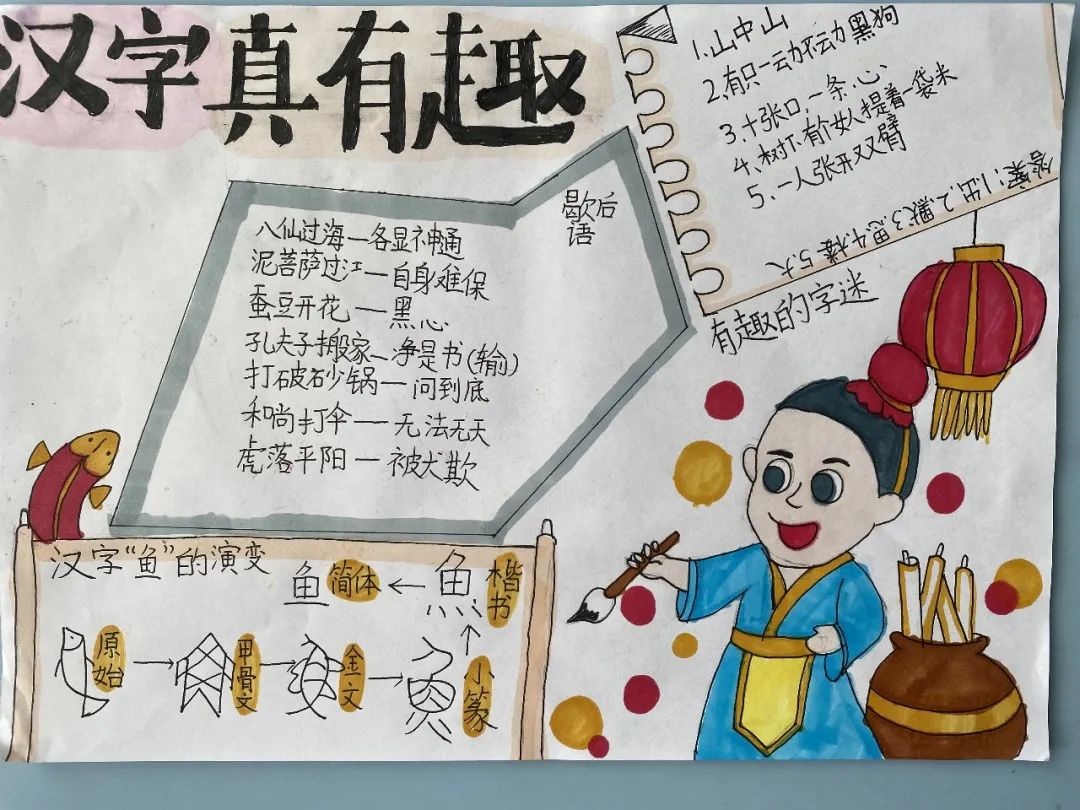 汉字真有趣
1.山中山
2、有只一动不动黑狗
3、十张口、一条心、
4、树下有个女人提着一袋米
5、一人张开双臂
答案:1.出 2.默 3.思 4.楼 5.大
有趣的字迷
歇后
语
八仙过海—各显神通
泥菩萨过江—自身难保
蚕豆开花—黑心
孔夫子搬家—净是书(输)
打破砂锅—问到底
和尚打伞—无法无天
虎落平阳—被犬欺
汉字“鱼”的演变
鱼 简体 ← 魚 楷书
原始 → 甲骨文 → 金文 → 小篆